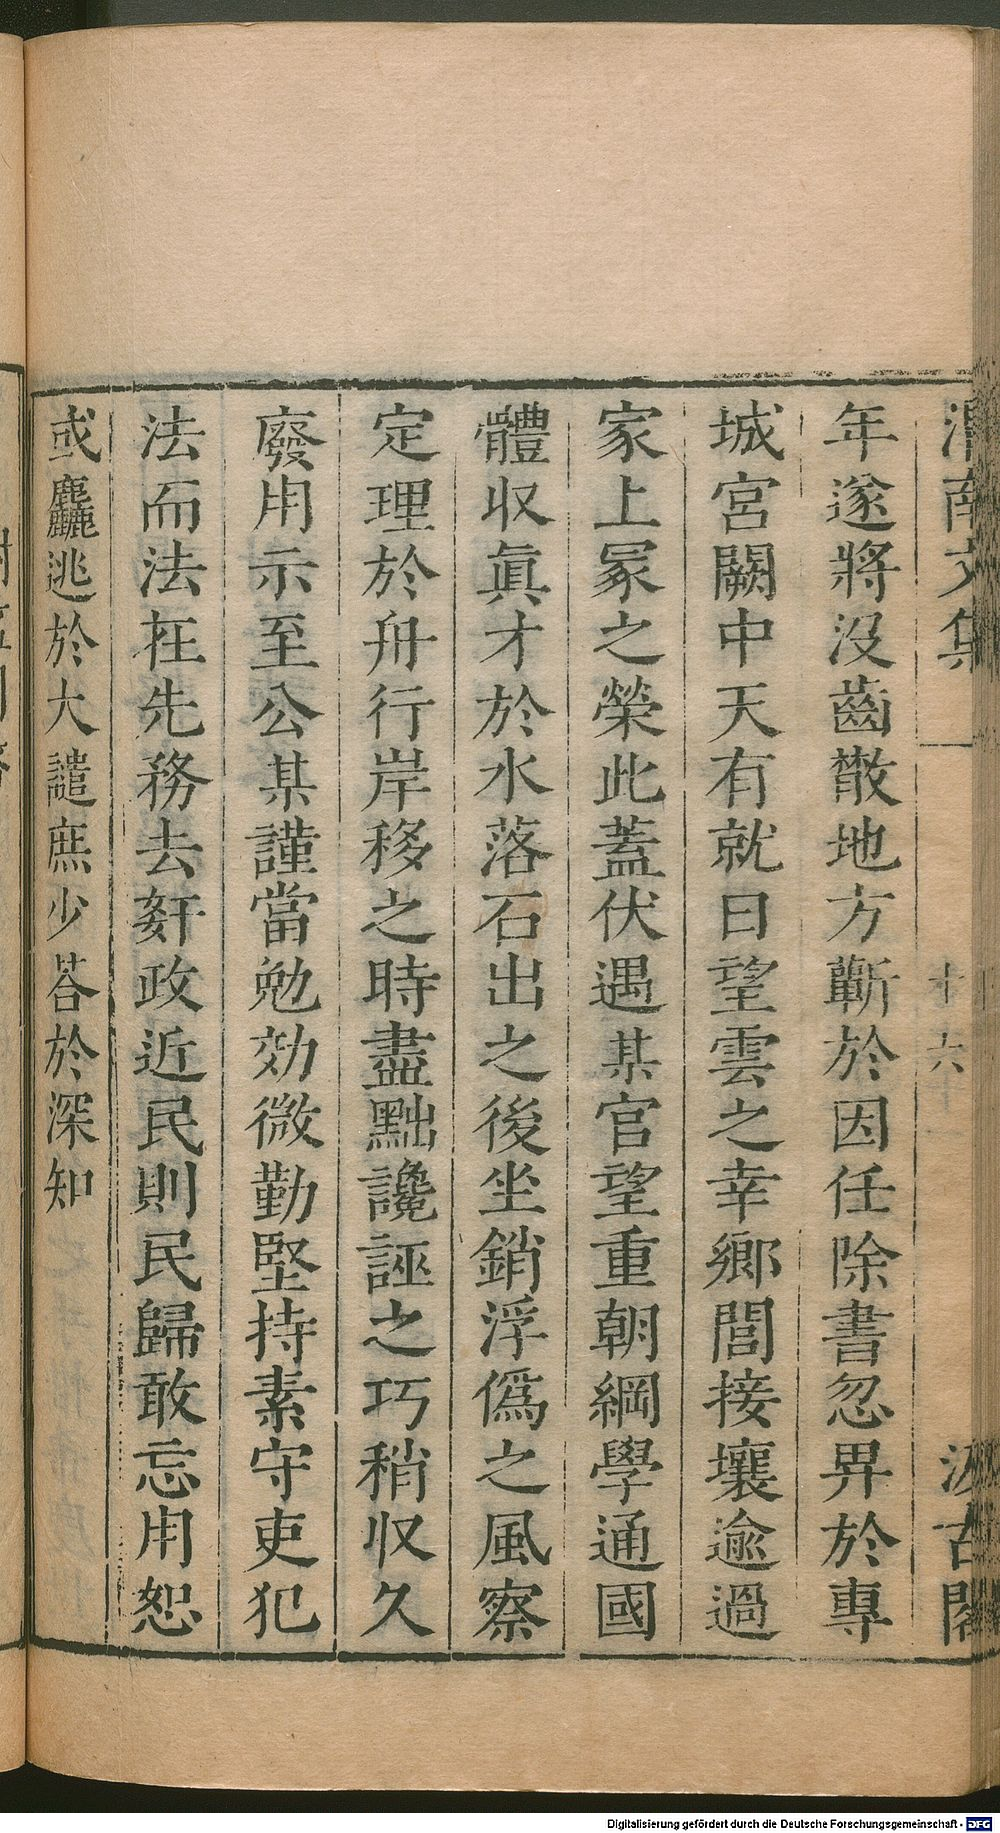 渭南文集 一 十六 汲古閣
年遂將没齒散地方蘄於因任除書忽畀於專
城宮闕中天有就日望雲之幸鄉閭接壤逾過
家上冢之榮此蓋伏遇某官望重朝綱學通國
體収眞才於水落石出之後坐銷浮僞之風察
定理於舟行岸移之時盡黜讒誣之巧稍収久
廢用示至公某謹當勉効微勤堅持素守吏犯
法而法在先務去姧政近民則民歸敢忘用恕
或麤逃於大譴庶少荅於深知
Digitalisierung gefördert durch die Deutsche Forschungsgemeinschaft - DFG